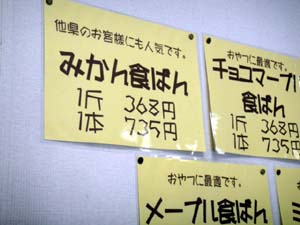 他県のお客様にも人気です。
みかん食ぱん
1斤 368円
1本 735円
おやつに最適です。
チョコマーブル
食ぱん
1斤 368円
1本 735円
おやつに最適です。
メープル食ぱん